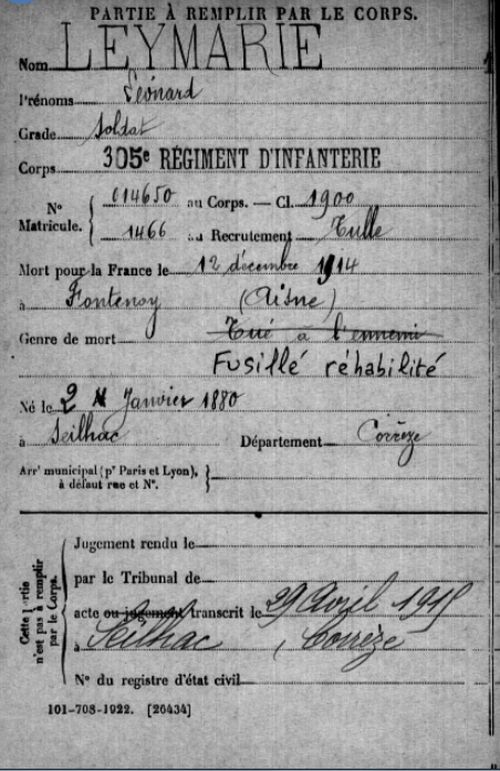 PARTIE À REMPLIR PAR LE CORPS.
Nom LEYMARIE
Prénoms Léonard
Grade Soldat
Corps 305e RÉGIMENT D'INFANTERIE
No Matricule. { 014650 au Corps. — Cl. 1900
1466 au Recrutement Tulle
Mort pour la France le 12 décembre 1914
à Fontenoy (Aisne)
Genre de mort Tué à l'ennemi
Fusillé réhabilité
Né le 2 Janvier 1880
à Seilhac Département Corrèze
Arrt municipal (pr Paris et Lyon), }
à défaut rue et No.
Cette partie n'est pas à remplir par le Corps.
Jugement rendu le
par le Tribunal de
acte ou jugement transcrit le 29 Avril 1915
à Seilhac (Corrèze
No du registre d'état civil
101-708-1922. [26434]